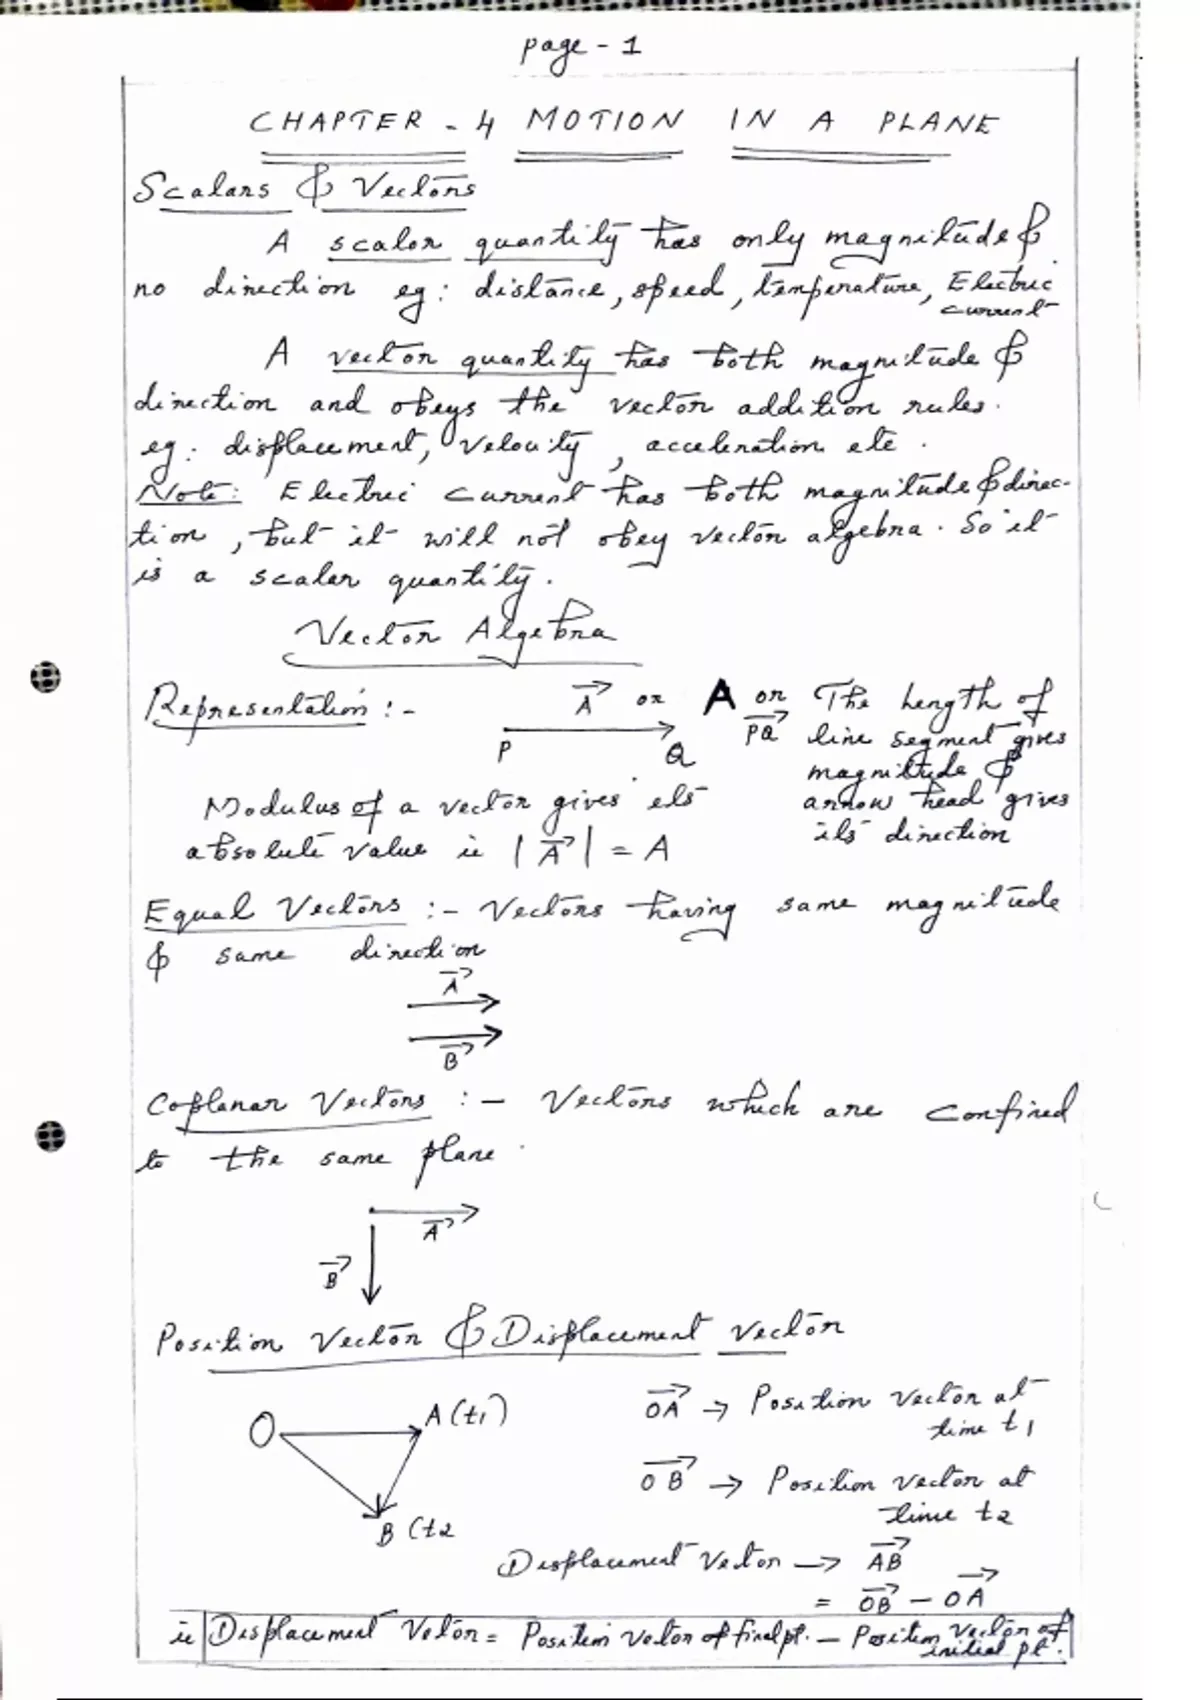 page - 1
CHAPTER - 4 MOTION IN A PLANE
Scalars & Vectors
A scalar quantity has only magnitude &
no direction eg: distance, speed, temperature, Electric
current
A vector quantity has both magnitude &
direction and obeys the vector addition rules.
eg: displacement, velocity, acceleration etc.
Note: Electric current has both magnitude & direc-
tion, but it will not obey vector algebra. So it
is a scalar quantity.
Vector Algebra
Representation :- A⃗ or A or PQ⃗
P Q
The length of
line segment gives
magnitude &
arrow head gives
its direction
Modulus of a vector gives its
absolute value ie |A⃗| = A
Equal Vectors :- Vectors having same magnitude
& same direction
A⃗
B⃗
Coplanar Vectors :- Vectors which are confined
to the same plane.
A⃗
B⃗
Position Vector & Displacement vector
O A (t1)
B (t2
OA⃗ → Position Vector at
time t1
OB⃗ → Position vector at
time t2
Displacement Vector → AB⃗
= OB⃗ - OA⃗
ie Displacement Vector = Position Vector of final pt. - Position Vector of
initial pt.